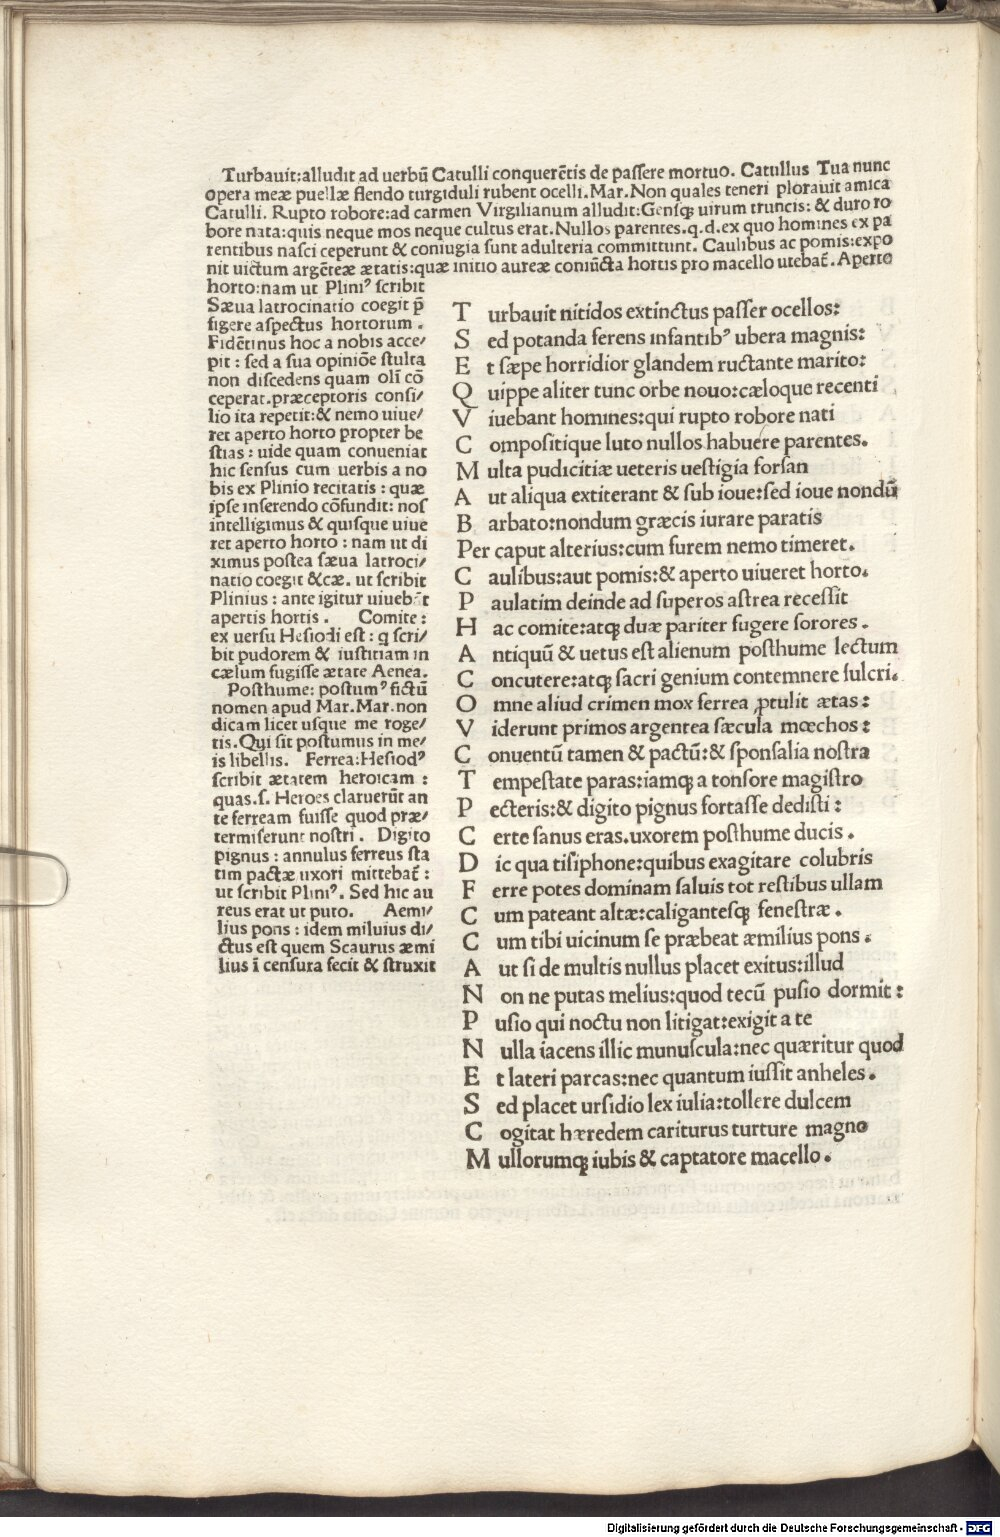 Turbauit:alludit ad uerbū Catulli conquerētis de paſſere mortuo. Catullus Tua nunc
opera meæ puellæ flendo turgiduli rubent ocelli.Mar.Non quales teneri plorauit amica
Catulli. Rupto robore:ad carmen Virgilianum alludit:Genſqꝫ uirum truncis: & duro ro
bore nata:quis neque mos neque cultus erat.Nullos parentes.q.d.ex quo homines ex pa
rentibus naſci ceperunt & coniugia ſunt adulteria committunt. Caulibus ac pomis:expo
nit uictum argēteæ ætatis:quæ initio aureæ coniūcta hortis pro macello utebat̄.Aperto
horto:nam ut Pliniꝰ ſcribit
Sæua latrocinatio coegit p̄
figere aſpectus hortorum .
Fidētinus hoc a nobis acce/
pit : ſed a ſua opinióe ſtulta
non diſcedens quam olī cō
ceperat.præceptoris conſi/
lio ita repetit:& nemo uiue/
ret aperto horto propter be
ſtias : uide quam conueniat
hic ſenſus cum uerbis a no
bis ex Plinio recitatis : quæ
ipſe inſerendo cōfundit: nos
intelligimus & quiſque uiue
ret aperto horto : nam ut di
ximus poſtea ſæua latroci/
natio coegit &cæ. ut ſcribit
Plinius : ante igitur uiuebāt
apertis hortis . Comite:
ex uerſu Heſiodi eſt : q ſcri/
bit pudorem & iuſtitiam in
cælum fugiſſe ætate Aenea.
Poſthume: poſtumꝰ fictū
nomen apud Mar.Mar.non
dicam licet uſque me roge/
tis.Qui ſit poſtumus in me/
is libellis. Ferrea:Heſiodꝰ
ſcribit ætatem heroicam :
quas.ſ. Heroes claruerūt an
te ferream fuiſſe quod præ/
termiſerunt noſtri . Digito
pignus : annulus ferreus ſta
tim pactæ uxori mittebat̄ :
ut ſcribit Pliniꝰ. Sed hic au
reus erat ut puto. Aemi/
lius pons : idem miluius di/
ctus eſt quem Scaurus æmi
lius ī cenſura fecit & ſtruxit
T urbauit nitidos extinctus paſſer ocellos:
S ed potanda ferens infantibꝰ ubera magnis:
E t ſæpe horridior glandem ructante marito:
Q uippe aliter tunc orbe nouo:cæloque recenti
V iuebant homines:qui rupto robore nati
C ompoſitique luto nullos habuere parentes.
M ulta pudicitiæ ueteris ueſtigia forſan
A ut aliqua extiterant & ſub ioue:ſed ioue nondū
B arbato:nondum græcis iurare paratis
Per caput alterius:cum furem nemo timeret.
C aulibus:aut pomis:& aperto uiueret horto.
P aulatim deinde ad ſuperos aſtrea receſſit
H ac comite:atqꝫ duæ pariter fugere ſorores .
A ntiquū & uetus eſt alienum poſthume lectum
C oncutere:atqꝫ ſacri genium contemnere fulcri.
O mne aliud crimen mox ferrea ꝓtulit ætas:
V iderunt primos argentea ſæcula mœchos :
C onuentū tamen & pactū:& ſponſalia noſtra
T empeſtate paras:iamqꝫ a tonſore magiſtro
P ecteris:& digito pignus fortaſſe dediſti :
C erte ſanus eras.uxorem poſthume ducis .
D ic qua tiſiphone:quibus exagitare colubris
F erre potes dominam ſaluis tot reſtibus ullam
C um pateant altæ:caligantesqꝫ feneſtræ .
C um tibi uicinum ſe præbeat æmilius pons .
A ut ſi de multis nullus placet exitus:illud
N on ne putas melius:quod tecū puſio dormit :
P uſio qui noctu non litigat:exigit a te
N ulla iacens illic munuſcula:nec quæritur quod
E t lateri parcas:nec quantum iuſſit anheles .
S ed placet urſidio lex iulia:tollere dulcem
C ogitat hæredem cariturus turture magno
M ullorumqꝫ iubis & captatore macello .
Digitalisierung gefördert durch die Deutsche Forschungsgemeinschaft - DFG